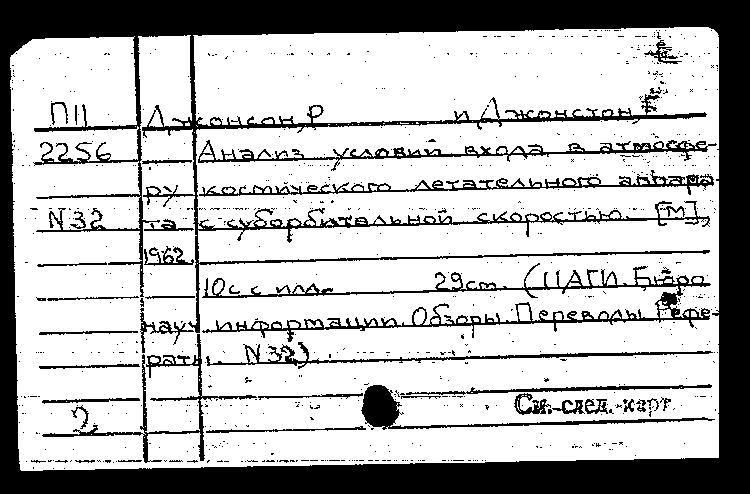 П11 Джонсон, Р и Джонстон,
2256 Анализ условий входа в атмосфе-
ру космического летательного аппара-
N32 та с суборбитальной скоростью. [М],
1962.
10с с илл. 29см. (ЦАГИ. Бюро
науч. информации. Обзоры. Переводы. Рефе-
раты. N32)
2 См. след. карт.